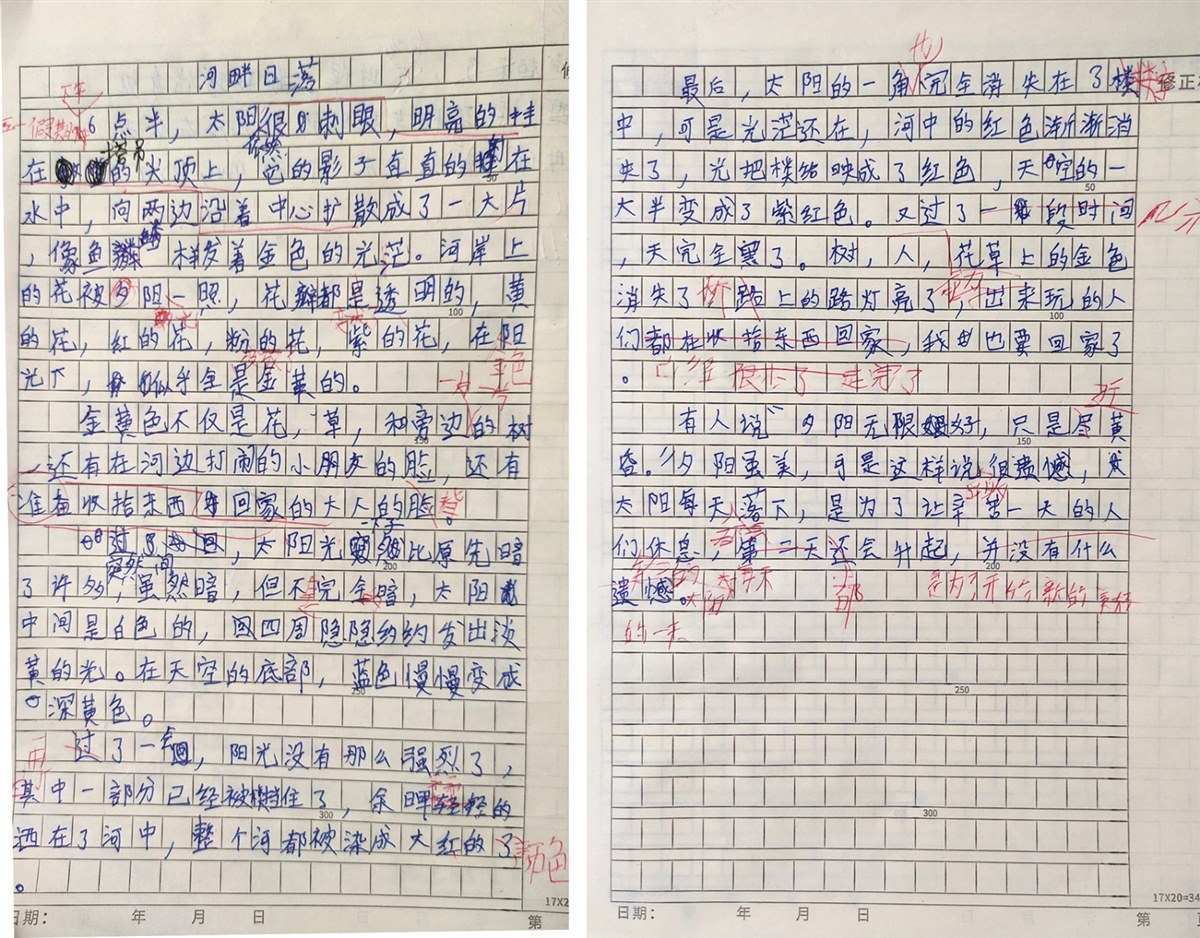 河畔日落
下午
五一假期的
6点半，太阳很刺眼，明亮的挂
依然
塔吊
在的尖顶上，它的影子直直的在
水中，向两边沿着中心扩散成了一大片
，像鱼鳞一样发着金色的光茫。河岸上
的花被夕阳一照，花瓣都是透明的，黄
的花，红的花，粉的花，紫的花，在阳
光下，似乎全是金黄的。
金色
一片
金黄色不仅是花，草，和旁边的树
，还有在河边打闹的小朋友的脸，还有
准备收拾东西回家的大人的脸。
突然间
过了，太阳光比原先暗
了许多，虽然暗，但不完全暗，太阳
中间是白色的，四周隐隐约约发出淡
黄的光。在天空的底部，蓝色慢慢变成
深黄色。
再
过了一会，阳光没有那么强烈了，
其中一部分已经被楼挡住了，余晖轻轻的
洒在了河中，整个河都被染成大红的了
色
。
日期： 年 月 日
第
17X2
最后，太阳的一角完全消失在了楼
修正
中，可是光茫还在，河中的红色渐渐消
失了，光把楼给映成了红色，天空的一
50
大半变成了紫红色。又过了一段时间
几分
，天完全黑了。树，人，花草上的金色
消失了，桥路上的路灯亮了，出来玩的人
100
们都在收拾东西回家，我也要回家了
。
已经 很少了 走完了
有人说“夕阳无限好，只是尽黄
近
150
昏。”夕阳虽美，可是这样说很遗憾，
太阳每天落下，是为了让辛苦一天的人
们休息，第二天还会升起，并没有什么
200
遗憾。
太阳
都
是为了开始新的
的一天
250
300
日期： 年 月 日
第
17X20=34